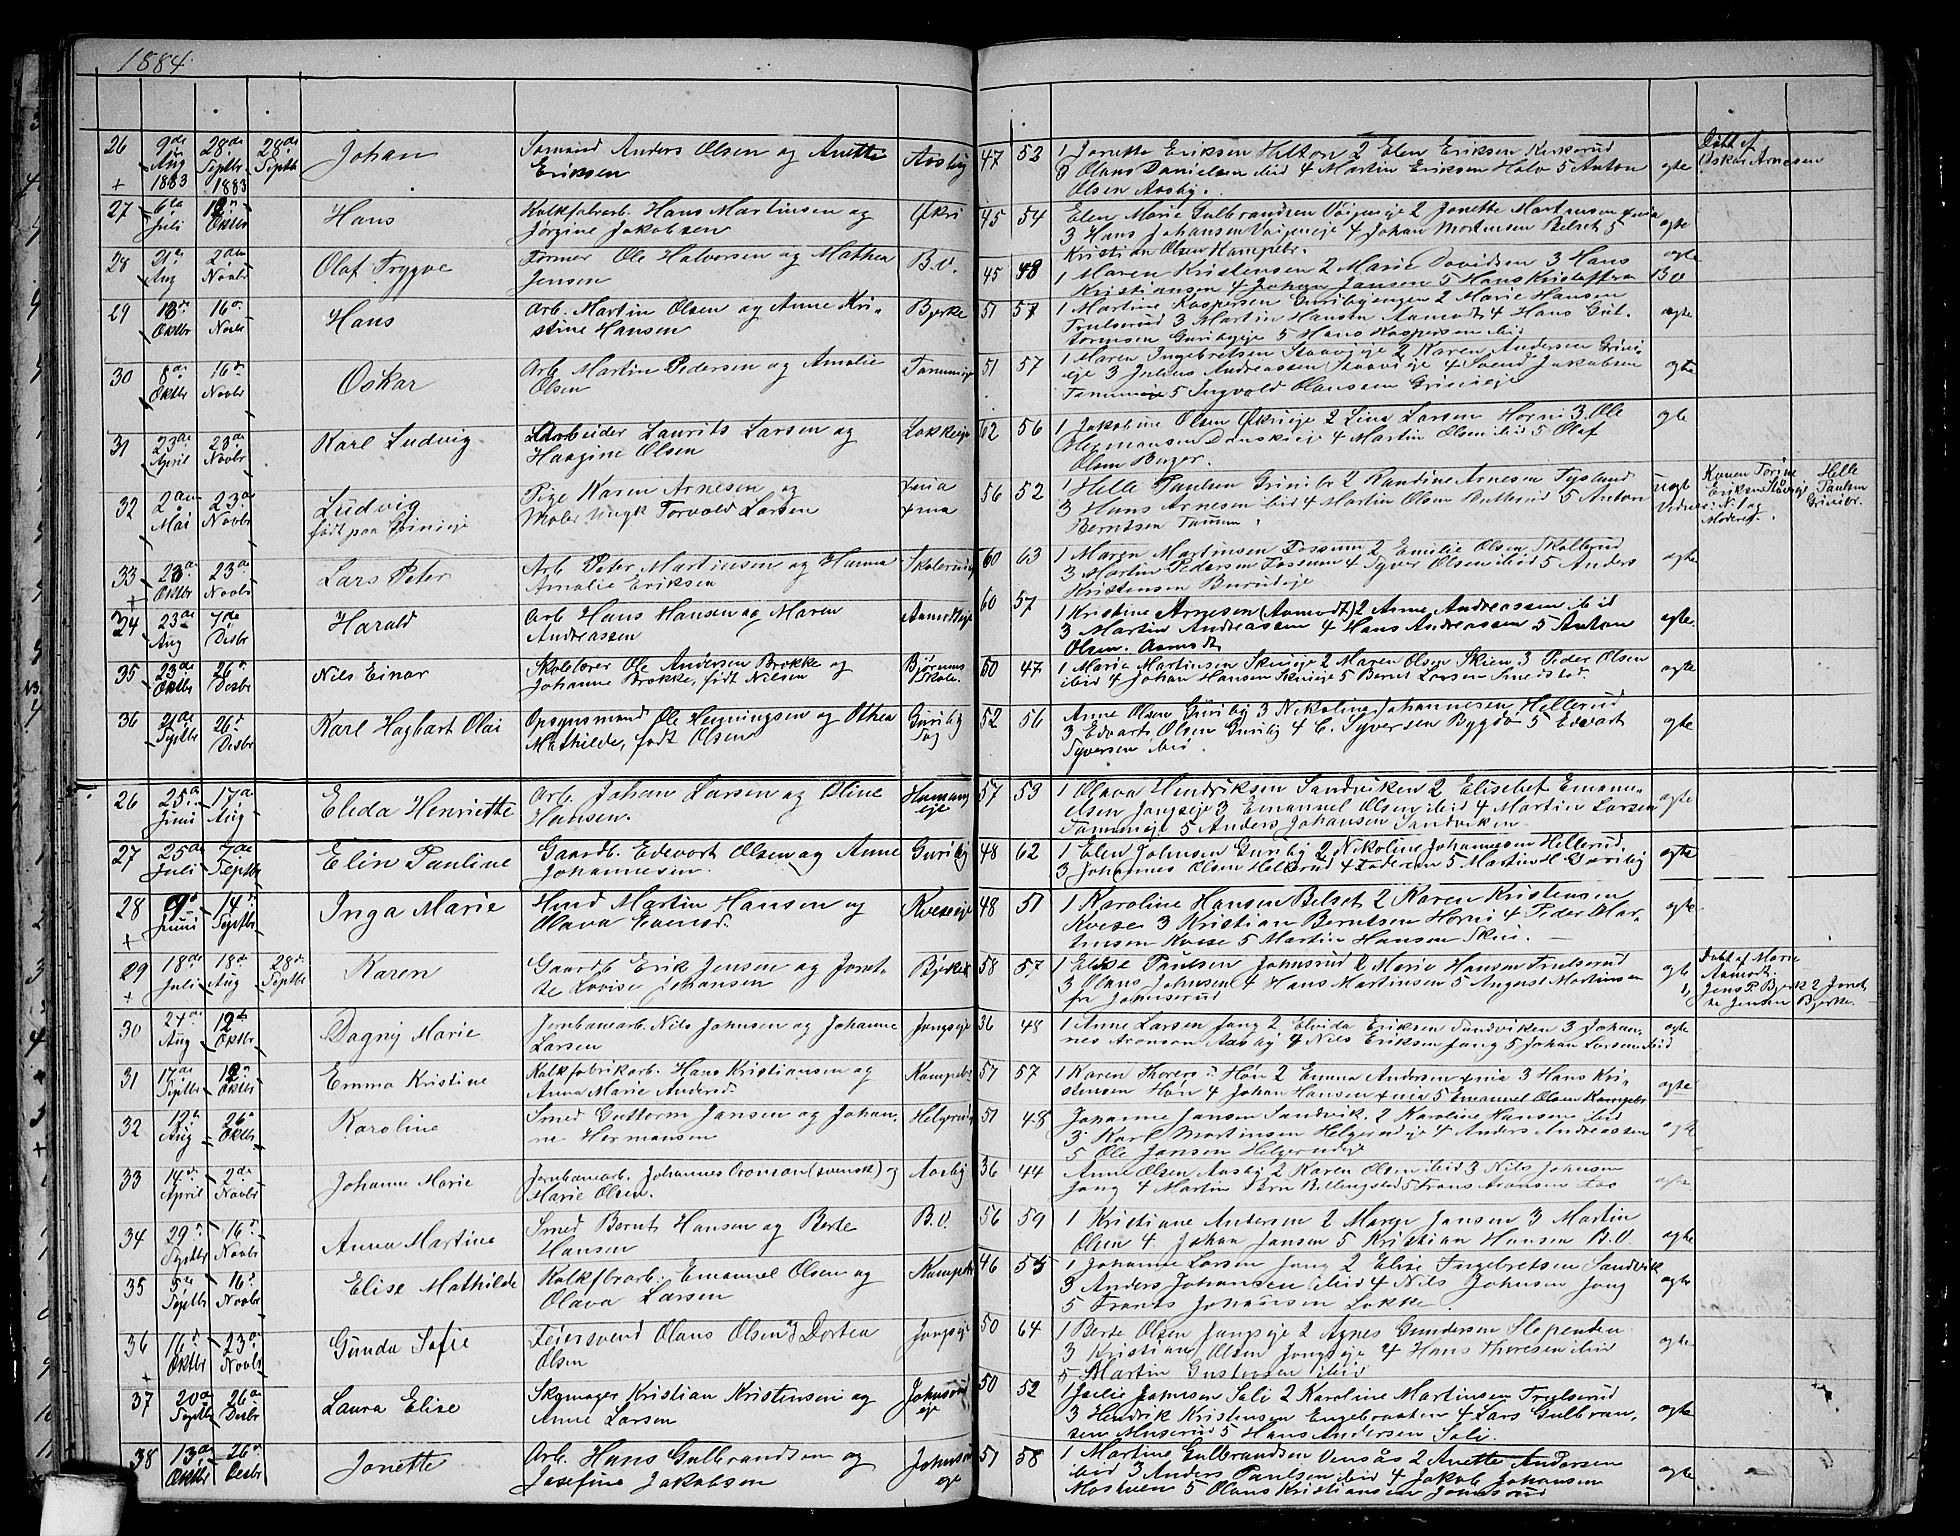 1884
26 9de Aug 1883 28de Septbr 1883 28de Septb Johan Sømand Anders Olsen og Anette Eriksen Aasby 47 52 1 Jonette Eriksen Hilton 2 Elen Eriksen Kinkerud
3 Olaus Danielsen ibid 4 Martin Eriksen Halv 5 Anton
Olsen Aasby. ægte Døbt af Oskar Arnesen
27 6te Juli Oktbr Hans Kalkfabrarb. Hans Martinsen og Jørgine Jakobsen Økri 45 54 Elen Marie Gulbrandsen Vøiencie 2 Jonette Martinsen
3 Hans Johansen 4 Johan Mortensen Belset 5
Kristian Olsen Kampebr. ægte
28 21de Aug 2den Novbr Olaf Tryggve Former Ole Halvorsen og Mathea Jensen B.V. 45 48 1 Maren Kristensen 2 Marie Davidsen 3 Hans
Kristiansen 4 Johan Jansen 5 Hans Kristoffersen B V ægte
29 13de Oktbr 16de Novbr Hans Arb. Martin Olsen og Anne Kristine Hansen Bjerke 51 57 1 Martine Kaspersen Guribyengen 2 Marie Hansen
Trulserud 3 Martin Hansen Aamodt 4 Hans Guttormsen
Guribyeje 5 Hans Kaspersen ibid ægte
30 8de Oktbr 16de Novbr Oskar Arb Martin Pedersen og Amalie Olsen Tanumeje 51 57 1 Maren Ingebretsen Staaveje 2 Karen Andersen Grinieje
3 Julius Andreassen Staaveje 4 Svend Jakobsen
Tanumeje 5 Ingvald Olaussen Grinieje ægte
31 23de April 23de Novbr Karl Ludvig Arbeider Laurits Larsen og Haagine Olsen Løkkeeje 62 56 1 Jakobine Olsen Økrieje 2 Lina Larsen Horni 3 Ole
Hermansen Dønskieje 4 Martin Olsen ibid 5 Olaf
Olsen Berger. ægte
32 2den Mai 23de Novbr Ludvig født paa Grinieje Pige Karen Arnesen og Møbr Ungk Torvald Larsen Xnia Xnia 56 52 1 Helle Paulsen Grinibr 2 Randine Arnesen Tysland
3 Hans Arnesen ibid 4 Martin Olsen 5 Anton
Berntsen Tanum. uægte Vidner: N. 1 og Moderen. Konen Jørgine Eriksen Staaveje Helle Paulsen Grinibr.
33 23de Oktbr 23de Novbr Lars Peter Arb Peter Martinsen og Hanna Amalie Eriksen Skolerudeje 60 63 1 Maren Martinsen Fossum 2 Emilie Olsen Skollerud
3 Martin Pedersen Fossum 4 Syver Olsen ibid 5 Anders
Kristensen Burudeje ægte
34 23de Aug 7de Desbr Harald Arb Hans Hansen og Maren Andreassen Aamodteje 60 57 1 Kristine Arnesen (Aamodt) 2 Anne Andreassen ibid
3 Martin Andreassen 4 Hans Andreassen 5 Anton
Olsen. Aamodt ægte
35 23de Oktbr 26de Desbr Nils Einar Skolelærer Ole Andersen Brokke og Johanne Brokke, født Nilsen Bjørnums Skole. 50 47 1 Maria Martinsen Skuieje 2 Maren Olsen Skien 3 Peder Olsen
ibid 4 Johan Hansen Skuieje 5 Bernt Larsen Smedstad. ægte
36 21de Septbr 26de Desbr Karl Hagbart Olai Opsynsmand Ole Henningsen og Othea Mathilde, født Olsen Guriby Sag 52 56 Anne Olsen Guriby 3 Nikoline Johannesen Hellerud
3 Edvart Olsen Guriby 4 C. Syversen Bygdø 5 Edvart
Syversen ibid. ægte
26 25de Juni 17de Aug Elida Henriette Arb. Johan Larsen og Oline Hansen. Hamangeje 57 53 1 Olava Hendriksen Sandviken 2 Elisebet Emanuelsen
Jongseje 3 Emanuel Olsen ibid 4 Martin Larsen
Tanumeje 5 Anders Johansen Sandviken ægte
27 25de Juli 7de Septbr Elin Pauline Gaardb. Edevart Olsen og Anne Johannesen. Guriby 48 62 1 Elen Johnsen Guriby 2 Nikoline Johannesen Hellerud
3 Johannes Olsen Hellerud 4 Faderen 5 Martin Guriby ægte
28 9de Juni 14de Septbr Inga Marie Husmd Martin Hansen og Olava Evensd. Kveseeje 48 51 1 Karoline Hansen Belset 2 Karen Kristensen
Kvese 3 Kristian Berntsen Horni 4 Peder Martinsen
Kvese 5 Martin Hansen Skui. ægte
29 18de Juli 18de Aug 28de Septbr Karen Gaardb Erik Jensen og Jonette Lovise Johansen Bjerke 58 57 1 Elise Paulsen Johnsrud 2 Marie Hansen Trulserud
3 Olaus Johnsen 4 Hans Martinsen 5 August Martinsen
fr Johnsrud ægte Døbt af Marie Aamodt. 1, Jens P. Bjerke 2 Jonette Jensen Bjerke.
30 24de Aug 12de Oktbr Dagny Marie Jernbanearb. Nils Johnsen og Johanne Larsen Jongseje 36 48 1 Anne Larsen Jong 2 Elvida Eriksen Sandviken 3 Johannes
Aronson Aasby 4 Nils Eriksen Jong 5 Johan Larsen ibid ægte
31 17de Septbr Oktbr Emma Kristine Kalkfabrikarb. Hans Kristiansen og Anna Marie Andersd. Kampebr 57 57 1 Karen Thoresd: Høn 2 Emma Andersen Xnia 3 Hans Kristensen
Høn 4 Johan Hansen Xnia 5 Emanuel Olsen Kampebr ægte
32 12te Aug 26de Oktbr Karoline Smed Guttorm Jansen og Johanne Hermansen Helgerudeje 51 48 Johanne Jansen Sandvik. 2 Karoline Hansen ibid
3 Karl Martinsen Helgerudeje 4 Anders Andreassen
5 Ole Jansen Helgerudeje ægte
33 14de April 2de Novbr Johanne Marie Jernbanearb. Johannes Aronson (svensk) og Marie Olsen. Aasby 36 44 Anne Olsen Aasby 2 Karen Olsen ibid 3 Nils Johnsen
Jong 4 Martin Bern Billingstad 5 Frans Aronsen ægte
34 29de Septbr 16de Novbr Anna Martine Smed Bernt Hansen og Berte Hansen B.V. 56 59 1 Kristiane Andersen 2 Maren Jansen 3 Martin
Olsen 4 Johan Jansen 5 Kristian Hansen B.V ægte
35 5te Septbr 16de Novbr Elise Mathilde Kalkfbrarb. Emanuel Olsen og Olava Larsen Kampebr 46 55 1 Johanne Larsen Jong 2 Elise Ingebretsen Sandvik
3 Anders Johansen ibid 4 Nils Johnsen Jong
5 Frants Johansen Løkke. ægte
36 16de Oktbr 23de Novbr Gunda Sofie Feiersvend Olaus Olsen & Dortea Olsen Jongseje 50 64 1 Berte Olsen Jongseje 2 Agnes Gundersen Slependen
3 Kristian Olsen Jongseje 4 Hans Thoresen ibid
5 Martin Gustavsen ibid ægte
37 20de Septbr 26de Desbr Laura Elise Skomager Kristian Kristensen og Anne Larsen Johnsrud eje 50 52 1 Julie Johnsen Soli 2 Karoline Martinsen Trulserud
3 Hendrik Kristensen Engebraaten 4 Lars Gulbransen
Muserud 5 Hans Andersen Soli. ægte
38 13de Oktbr 26de Desbr Jonette Arb. Hans Gulbrandsen og Josefine Jakobson Johnsrud eje 51 58 1 Martine Gulbrandsen Vensås 2 Anette Andersen
ibid 3 Anders Paulsen ibid 4 Jakob Johansen
Mostuen 5 Olaus Kristiansen Johnsrud ægte